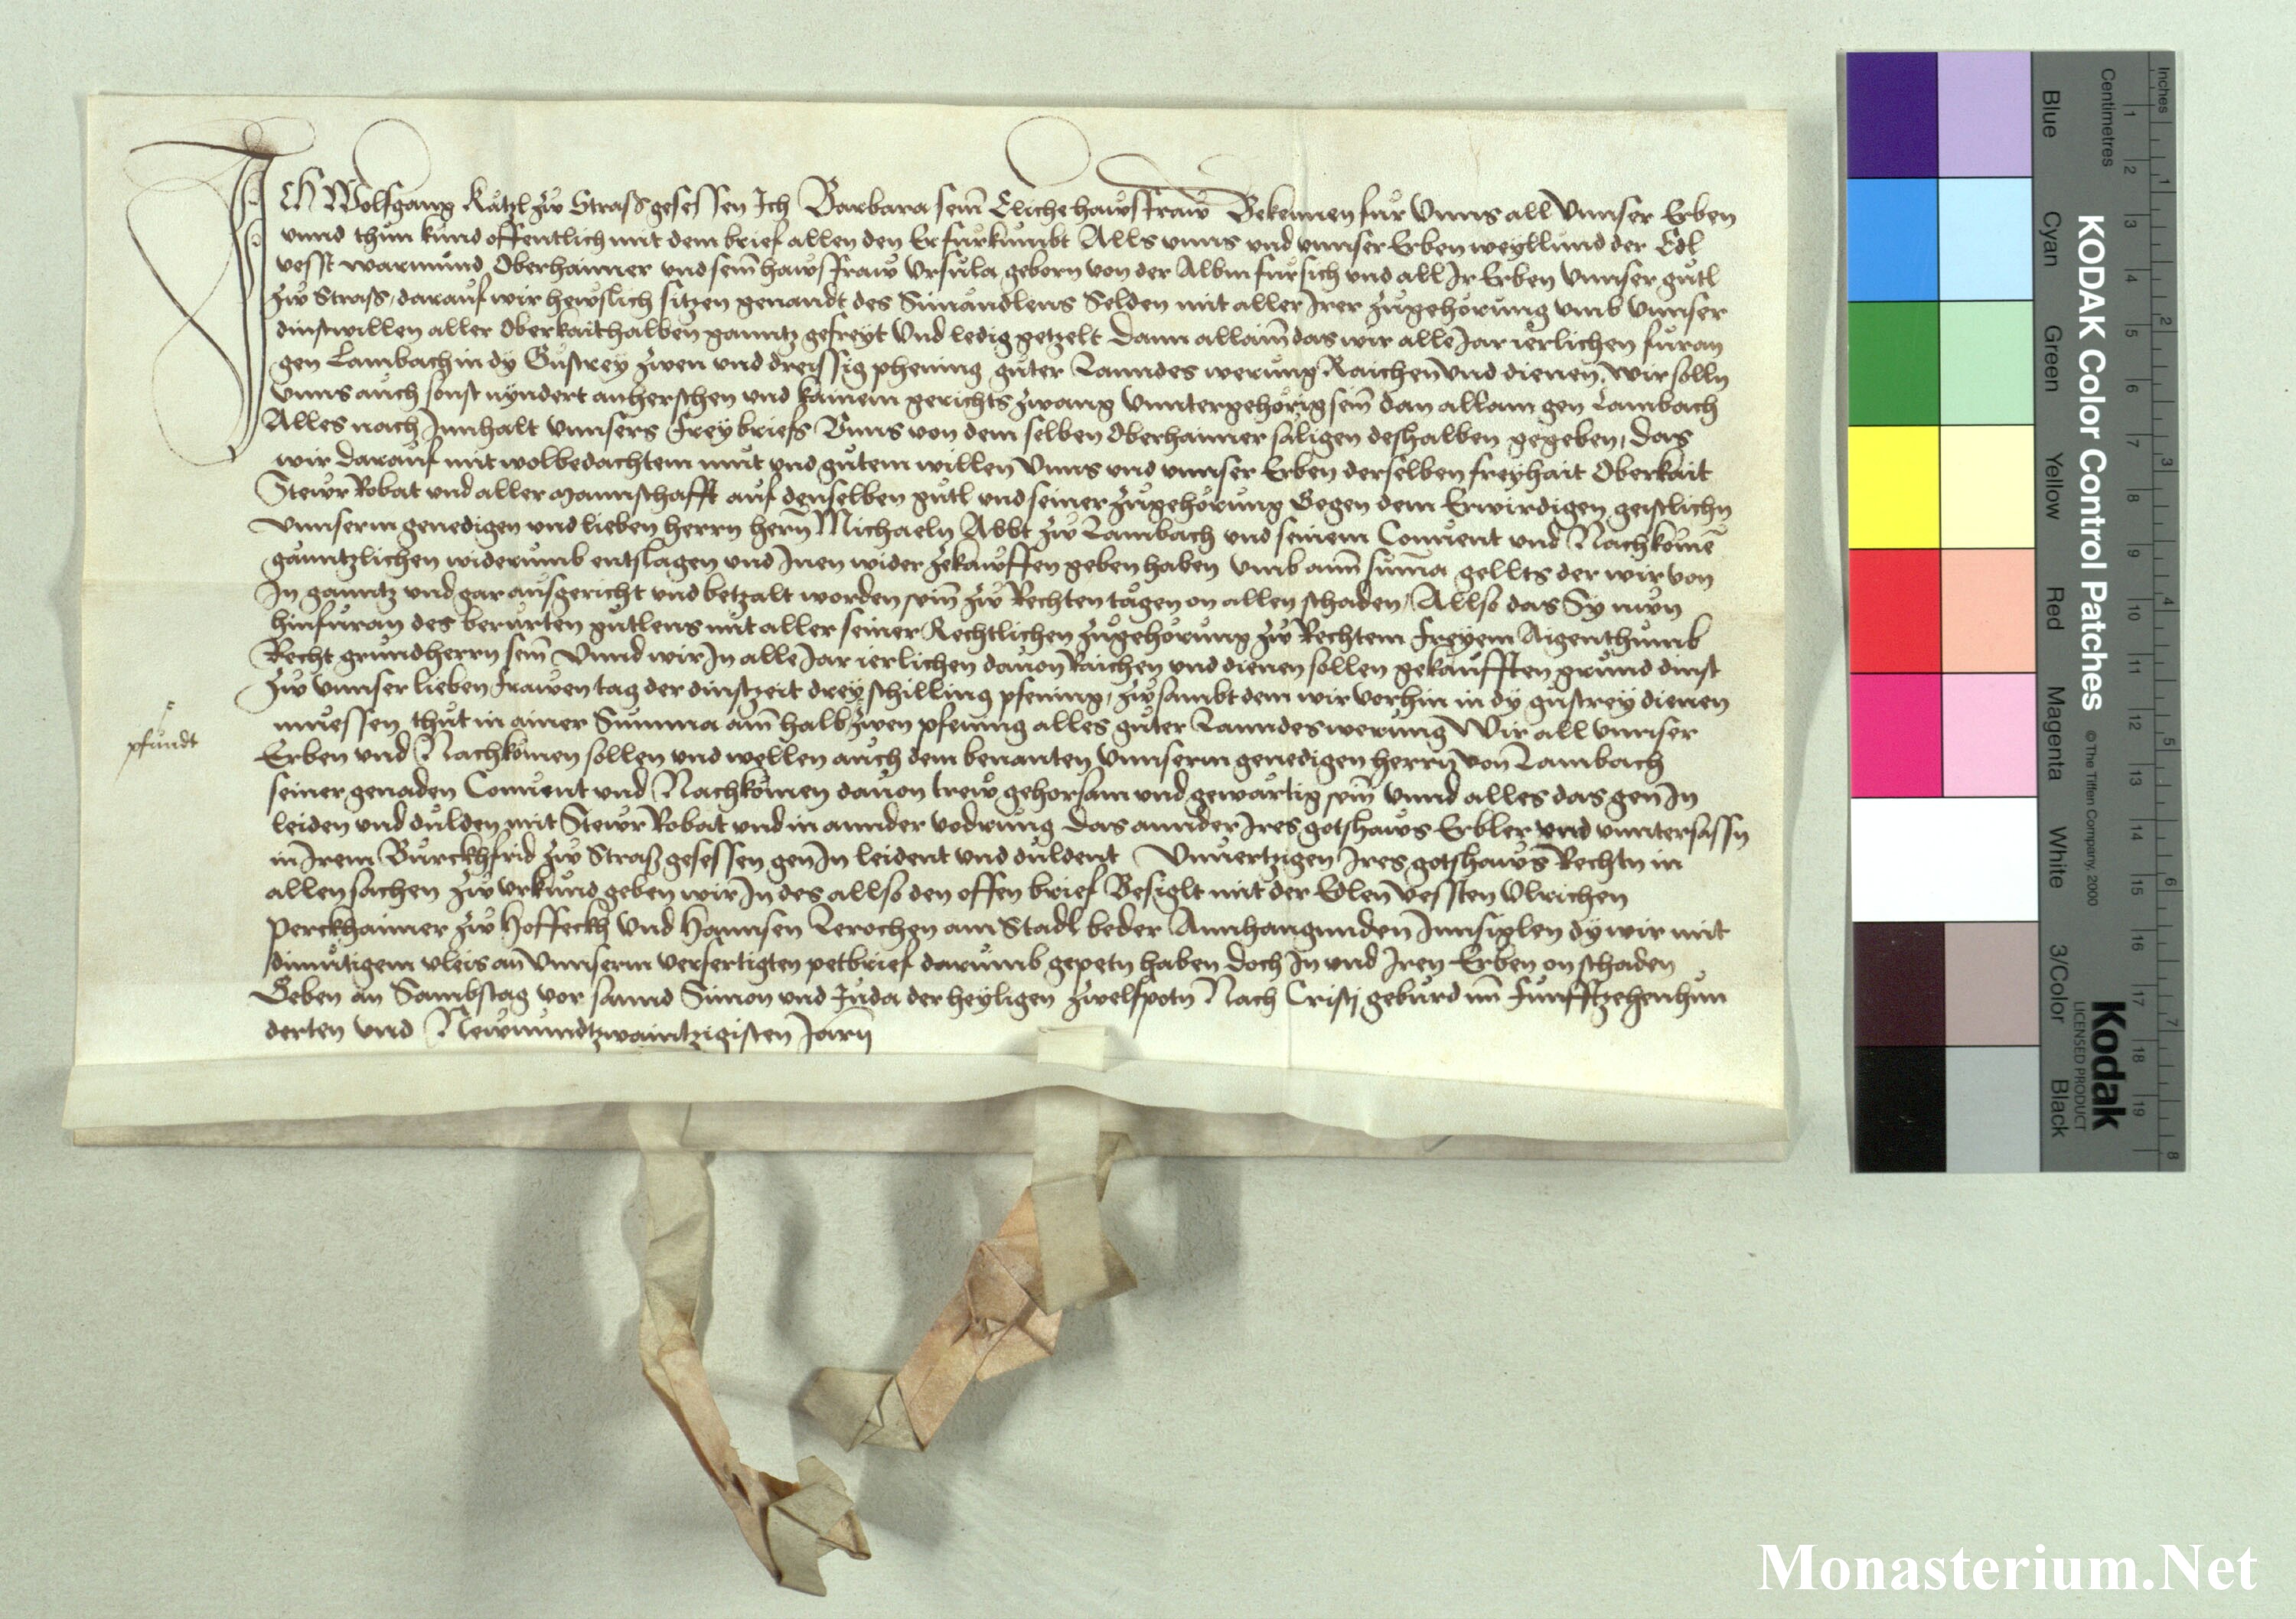 Ich Wolfgang Kätzl zw Strass gesessen Ich Barbara sein Eliche hawsfraw Bekennen fur Unns all Unnser Erben
unnd thun kund offentlich mit dem brief allen den Er furkumbt Alls unns und unnser Erben weyllund der Edl
vesst warmund Oberhaimer und sein hawsfraw Ursula geborn von der Albm fur sich und all Ir Erben Unnser gutl
zw Strass darauf wir hewslich sitzen genandt des Simandlens Selden mit aller Irer zugehorung umb Unnser
dinst willen aller Oberkait halben ganntz gefreyt Und ledig getzelt Dann allain das wir alle Jar ierlichen furan
gen Lambach in dy Gustrey zwen und dreissig phening guter Lanndes werung Raichen und dienen, wir solln
unns auch sonst nyndert anherschen und kainem gerichts zwang Unntergehorig sein dan allain gen Lambach
Alles nach Innhalt Unnsers freybriefs Unns von dem selben Oberhaimer saligen deshalben gegeben, Das
wir darauf mit wolbedachtem mut und gutem willen Unns und unnser Erben derselben freyhait Oberkait
Stewr Robat und aller mannschafft auf denselben gutl und seiner zugehorung Gegen dem Erwirdigen geistlichn
Unnserm genedigen und lieben herrn hern Michaeln Abbt zw Lambach und seinem Convent und Nachkome
ganntzlichen widerumb entslagen und Inen wider zekawffen geben haben umb ain suma gellts der wir von
In ganntz und gar ausgericht und betzalt worden sein zw Rechten tagen on allen schaden, Allso das Sy nun
hinfuran des berurten gutlens mit aller seiner Rechtlichen zugehorung zw Rechtem freyem Aigenthumb
Recht grundherrn sein Unnd wir In alle Jar ierlichen davon Raichen und dienen sollen gekaufften grund dinst
zw Unnser lieben frawen tag der dinstzeit drey schilling pfening, zw sambt dem wir vorhin in dy gustrey dienen
muessen thut in ainer Summa ain halb zwen pfening alles guter Lanndes werung Wir all unnser
pfundt
Erben und Nachkomen sollen und wellen auch dem benanten Unnserm genedigen herrn von Lambach
seiner genaden Convent und Nachkomen davon trew gehorsam und gewartig sein Unnd alles das gen In
leiden und dulden mit Stewr Robat und in annder vodrung das annder Ires gotshaws Erbler und unntersassn
in Irem Burckhfrid zw Strass gesessen gen In leident und duldent Unvertzigen Ires gotshaws Rechtn in
allen sachen zw Urkund geben wir In des allso den offen brief Besiglt mit der Edlen Vessten Ulrichen
Perckhaimer zw Hoffeckh Und Hannsen Lerochen am Stadl beder Annhangunden Innsiglen dy wir mit
dimutigem vleis an Unnserm verfertigten petbrief darumb gepetn haben doch In und Iren Erben on schaden
Geben an Sambstag vor sannd Simon und Juda der heyligen zwelfpotn Nach Cristi geburd im Funfftzehenhun
derten und Newnundtzwaintzigisten Jarn
KODAK Color Control Patches
© The Tiffen Company, 2000
Kodak
LICENSED PRODUCT
Blue Cyan Green Yellow Red Magenta White 3/Color Black
Inches
1 2 3 4 5 6 7 8
Centimetres
1 2 3 4 5 6 7 8 9 10 11 12 13 14 15 16 17 18 19
Monasterium.Net